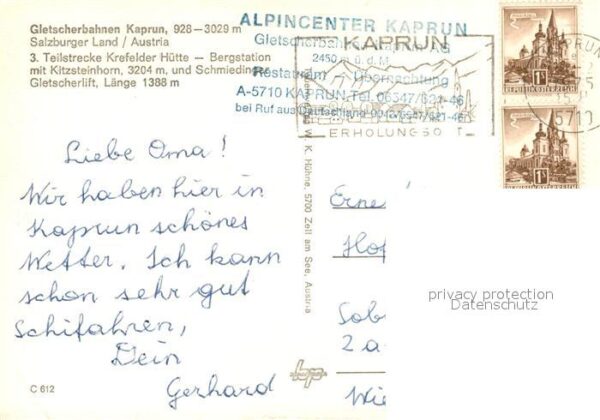 Gletscherbahnen Kaprun, 928–3029 m
Salzburger Land / Austria
3. Teilstrecke Krefelder Hütte — Bergstation
mit Kitzsteinhorn, 3204 m, und Schmieding
Gletscherlift, Länge 1388 m
ALPINCENTER KAPRUN
Gletscherbahnen Kaprun AG
2450 m ü. d. M.
Restaurant — Übernachtung
A-5710 KAPRUN, Tel. 06547/821-46
bei Ruf aus Deutschland 0043/6547/821-46
KAPRUN
ERHOLUNGSO T
KAPRUN
5710
1S
REPUBLIK ÖSTERREICH
1S
REPUBLIK ÖSTERREICH
Liebe Oma!
Wir haben hier in
Kaprun schönes
Wetter. Ich kann
schon sehr gut
Schifahren,
Dein
Gerhard
K. Hühne, 5700 Zell am See, Austria
Erne
Hop
Sob
2 a
Wie
privacy protection
Datenschutz
C 612